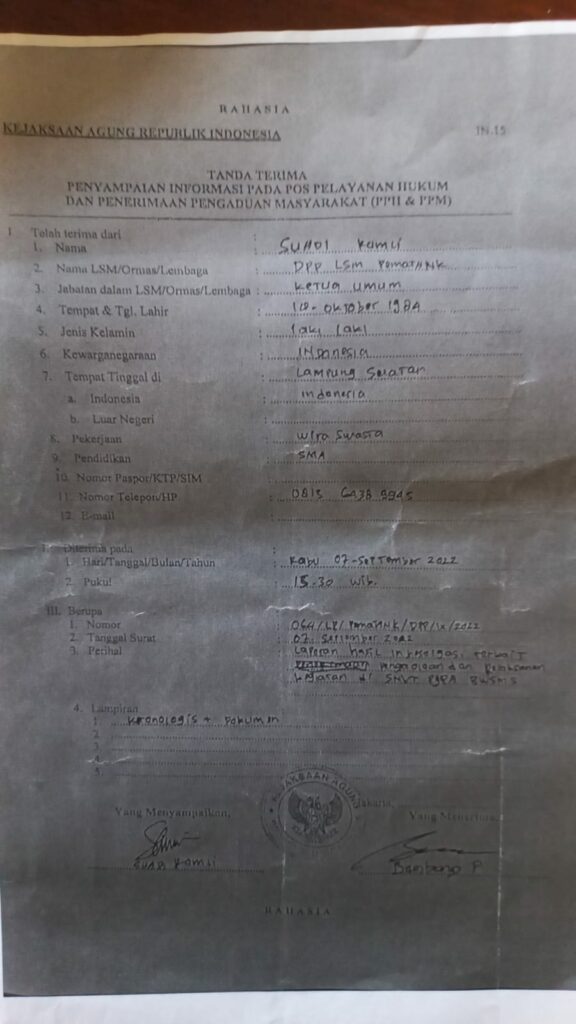 RAHASIA
KEJAKSAAN AGUNG REPUBLIK INDONESIA IN.15
TANDA TERIMA
PENYAMPAIAN INFORMASI PADA POS PELAYANAN HUKUM
DAN PENERIMAAN PENGADUAN MASYARAKAT (PPH & PPM)
I. Telah terima dari :
1. Nama : SUADI Romli
2. Nama LSM/Ormas/Lembaga : DPP LSM PEMATANK
3. Jabatan dalam LSM/Ormas/Lembaga : Ketua Umum
4. Tempat & Tgl. Lahir : Oktober 1984
5. Jenis Kelamin : laki laki
6. Kewarganegaraan : INDONESIA
7. Tempat Tinggal di : Lampung Selatan
a. Indonesia : indonesia
b. Luar Negeri :
8. Pekerjaan : Wira Swasta
9. Pendidikan : SMA
10. Nomor Paspor/KTP/SIM :
11. Nomor Telepon/HP. : 0815
12. E-mail :
Diterima pada :
1. Hari/Tanggal/Bulan/Tahun : Rabu 07-September 2022
2. Pukul : 15.30 WIB.
III. Berupa
1. Nomor : /DPP/IX/2022
2. Tanggal Surat : 07 September 2022
3. Perihal : Laporan hasil terkait
pengadaan dan
di SNVT PJPA BWSMS
4. Lampiran :
1. Kronologis + Dokumen
2.
3.
4.
5.
KEJAKSAAN AGUNG
Jakarta,
Yang Menyampaikan, Yang Menerima,
SUADI Romli Bambang P
RAHASIA